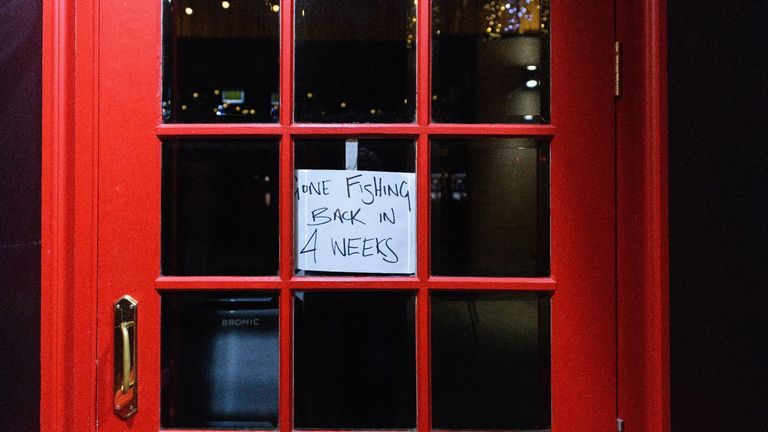 GONE FISHING
BACK IN
4 WEEKS
BROMIC